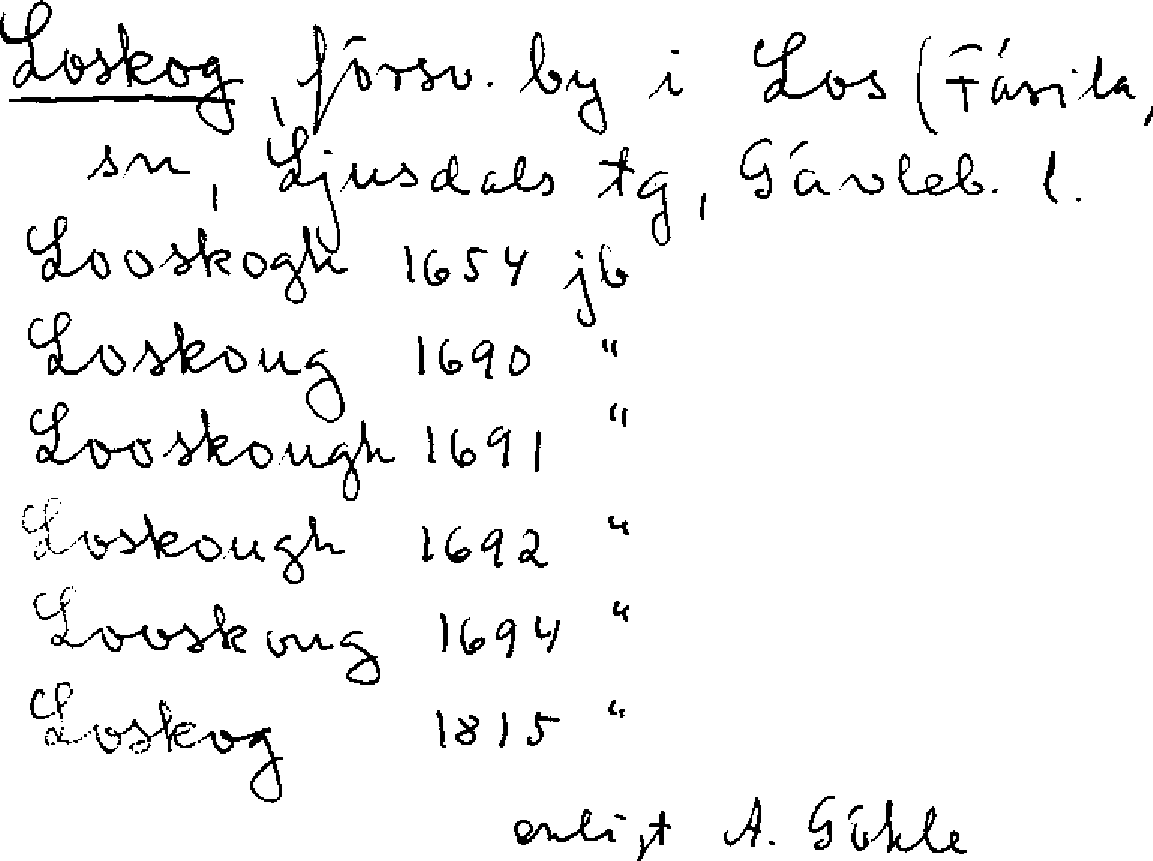 Loskog, försv. by i Los (Färila,
sn, Ljusdals tg, Gävleb. l.
Looskogh 1654 jb
Loskoug 1690 "
Looskough 1691 "
Loskough 1692 "
Looskoug 1694 "
Loskog 1815 "
enligt A. Göhle